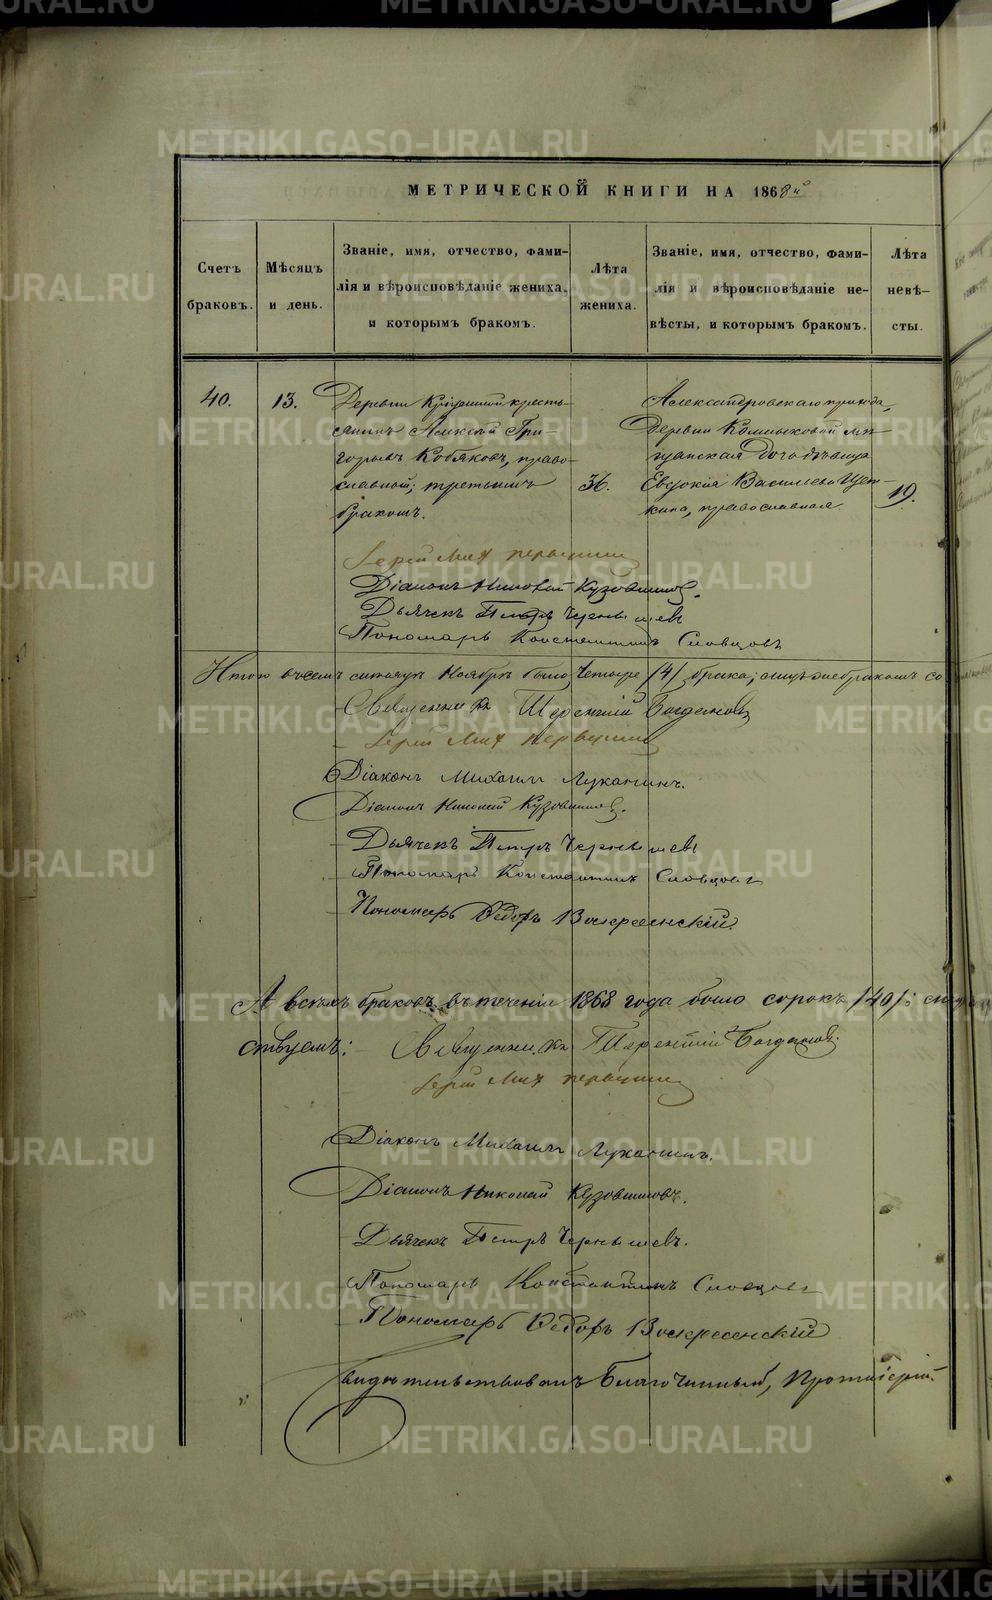 МЕТРИЧЕСКОЙ КНИГИ НА 1868й
Счетъ браковъ.
Мѣсяцъ и день.
Званіе, имя, отчество, фами-
лія и вѣроисповѣданіе жениха,
и которымъ бракомъ.
Лѣта жениха.
Званіе, имя, отчество, фами-
лія и вѣроисповѣданіе не-
вѣсты, и которымъ бракомъ.
Лѣта невѣ-
сты.
40.
13.
Деревни кресть-
янинъ Алексѣй Гри-
горьевъ Кобяковъ, право-
славной; третьимъ
бракомъ.
36.
прихода,
Деревни мѣ-
щанская дочь дѣвица
Евдокія Васильева Щет-
кина, православная.
19.
Іерей Мих Первушинъ
Діаконъ Николай Кузовниковъ.
Дьячекъ Петръ Чернышевъ
Пономарь Константинъ Словцовъ
Итого въ семъ Ноябрѣ было четыре /4/ брака;
Священникъ Терентій Богдановъ
Іерей Мих Первушинъ
Діаконъ Михаилъ Луканинъ.
Діаконъ Николай Кузовниковъ.
Дьячекъ Петръ Чернышевъ
Пономарь Константинъ Словцовъ
Пономарь Ѳедоръ Воскресенскій.
А всѣхъ браковъ въ теченіе 1868 года было сорокъ /40/;
ствуемъ:
Священникъ Терентій Богдановъ.
Іерей Мих Первушинъ
Діаконъ Михаилъ Луканинъ.
Діаконъ Николай Кузовниковъ.
Дьячекъ Петръ Чернышевъ.
Пономарь Константинъ Словцовъ
Пономарь Ѳедоръ Воскресенскій
Благочинный, Протоіерей
METRIKI.GASO-URAL.RU